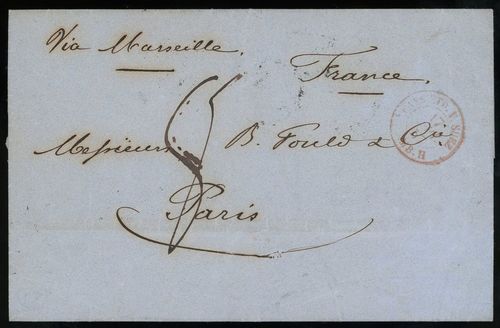 Via Marseille.
France.
Messieurs B. Fould & Cie
Paris